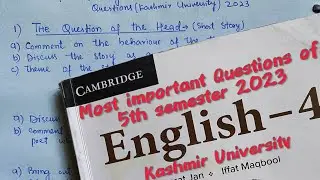 Questions (Kashmir University) 2023
1) The Question of the Head → (Short Story)
a) Comment on the behaviour of the
b) Discuss the story as
c) Theme of the
CAMBRIDGE
Most important Questions of
5th semester 2023
English-4
Kashmir University
Jan
Iffat Maqbool
a) Discuss
b) Comment
poet
a) Bring out